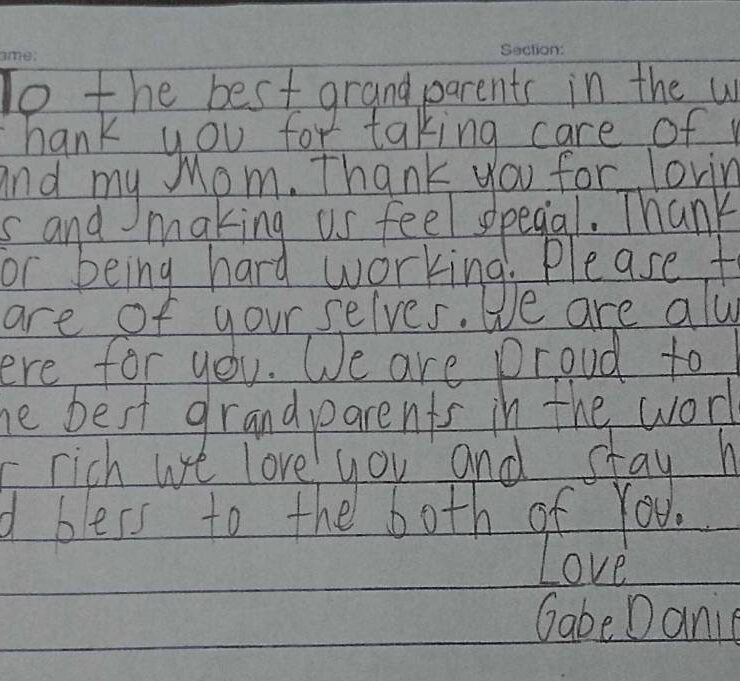 ame:
Section:
To the best grandparents in the w
hank you for taking care of
and my Mom. Thank you for lovin
s and making us feel special. Thank
or being hard working. Please t
are of your selves. We are alw
ere for you. We are proud to
he best grandparents in the worl
r rich we love you and stay h
d bless to the both of You.
Love
Gabe Danie